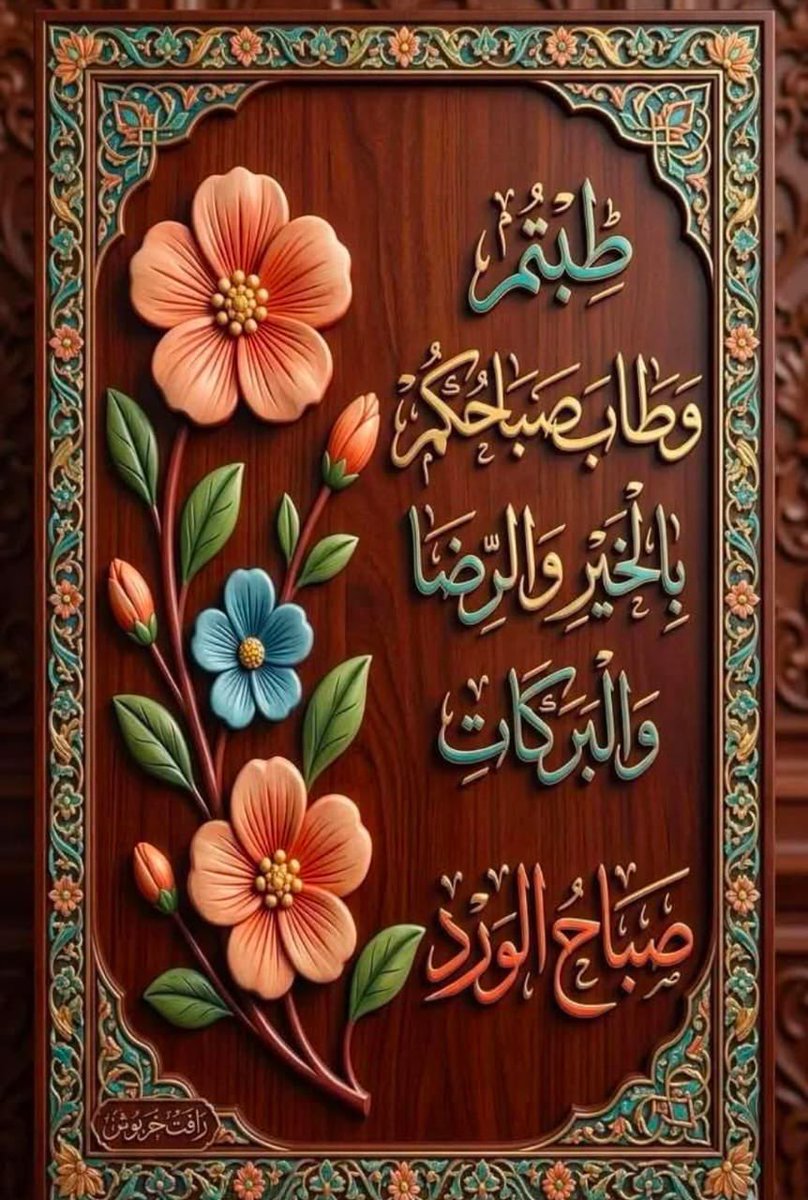 طِبْتُمْ
وَطَابَ صَبَاحُكُمْ
بِالْخَيْرِ وَالرِّضَا
وَالْبَرَكَاتِ
صَبَاحُ الوَرْد
رافت خربوش